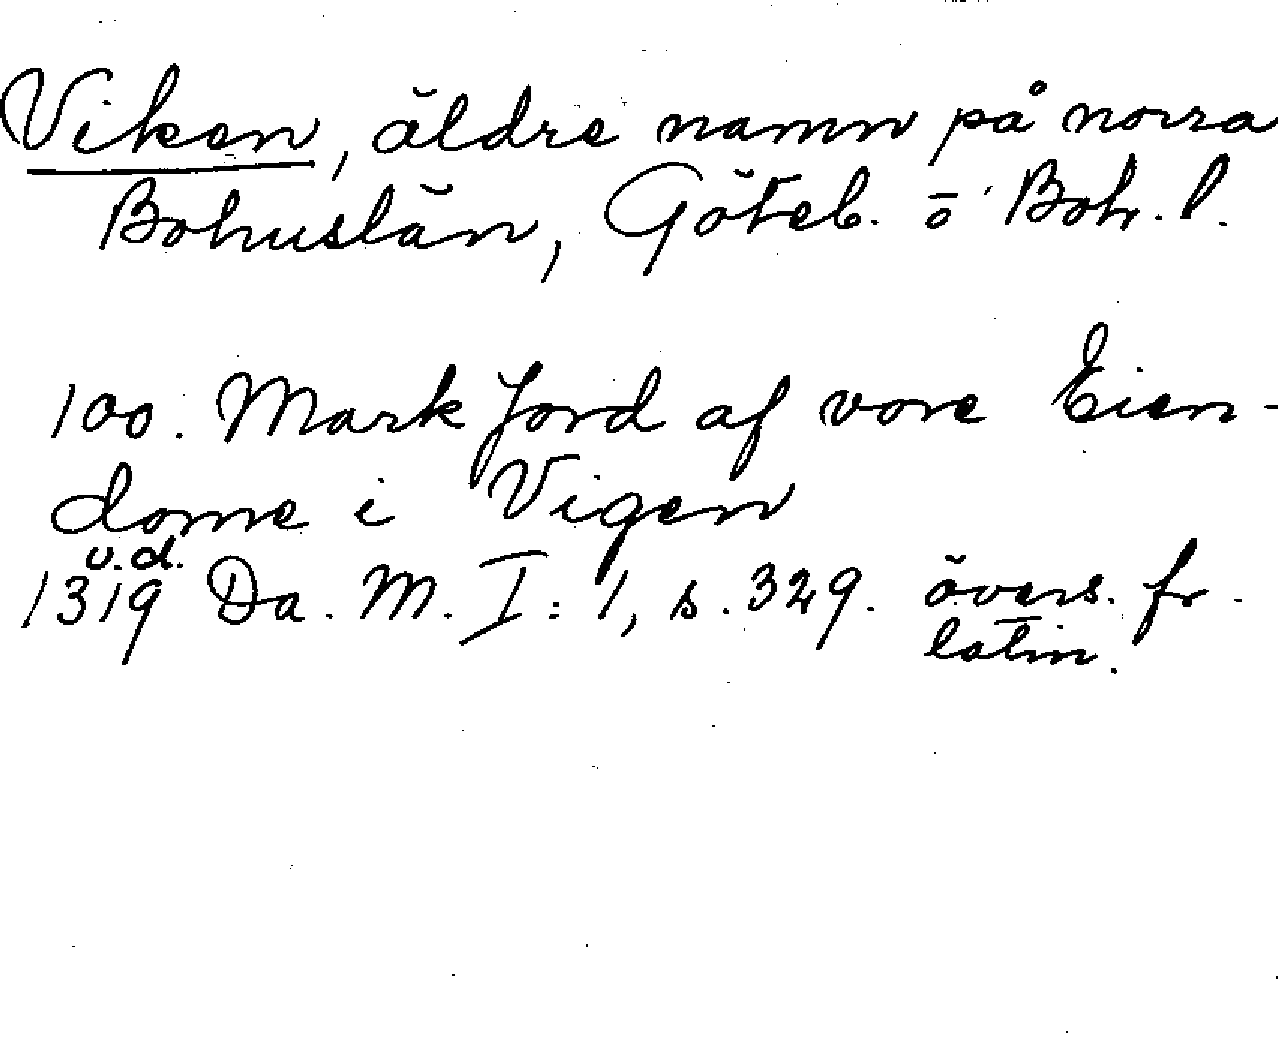 Viken, äldre namn på norra
Bohuslän, Göteb. o Boh. l.
100. Mark Jord af vore Eien-
dome i Vigen
u.d.
1319 Da. M. I: 1, s. 329. övers. fr.
latin.